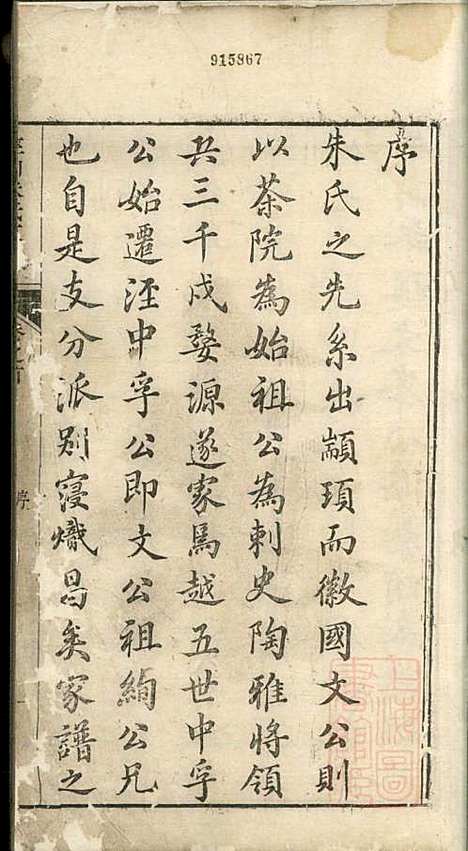 915867
序
朱氏之先系出顓頊而徽國文公則
以茶院為始祖公為刺史陶雅將領
兵三千戍婺源遂家焉越五世中孚
公始遷涇中孚公即文公祖絢公兄
也自是支分派别寖熾昌矣家譜之
序
上海圖書館藏